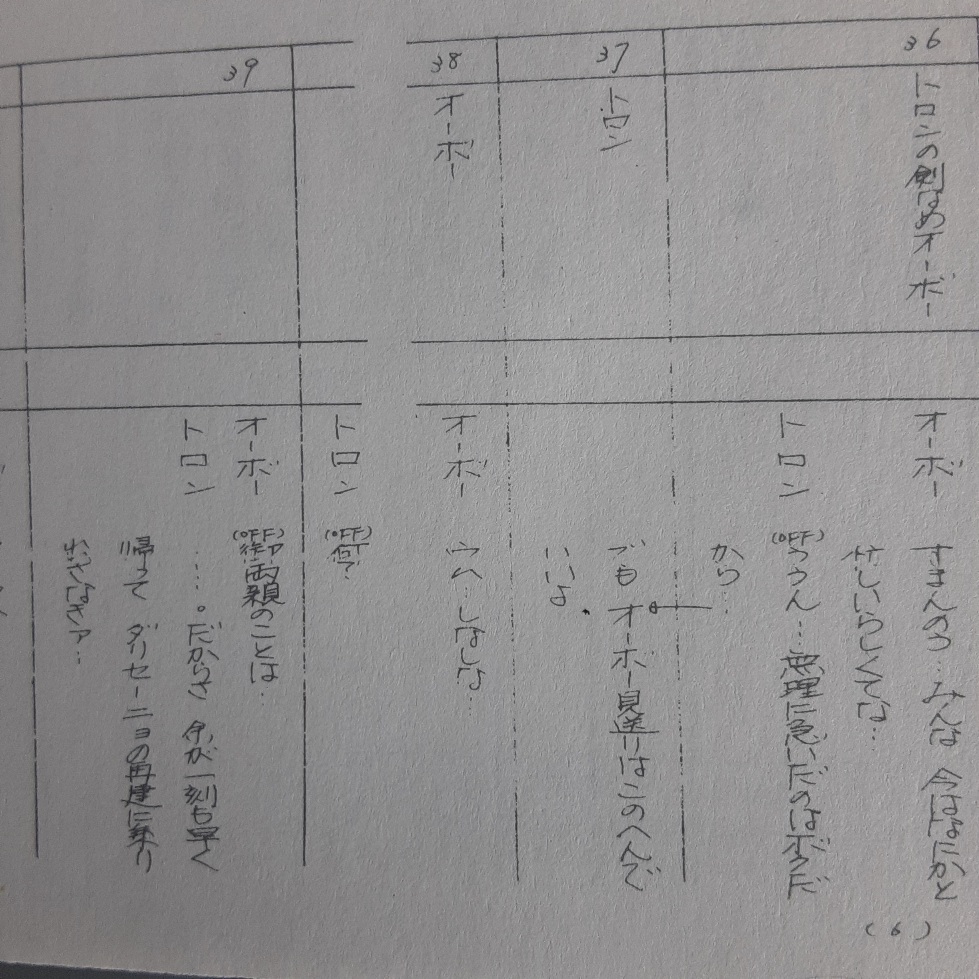 36
トロンの剣なめオーボー
オーボー すまんのう…みんは 今はなにかと
忙しいらしくてな…
トロン (OFF)ううん…無理に急いだのはボクだ
から…
37
トロン
でも オーボー見送りはこのへんで
いいよ。
38
オーボー
オーボー ウム…しかしな…
トロン (OFF)何?
39
オーボー (OFF)御両親のことは…
トロン ……。だからさ 余が一刻も早く
帰って ダリセーニョの再建に乗り
ださなきァ…
(6)